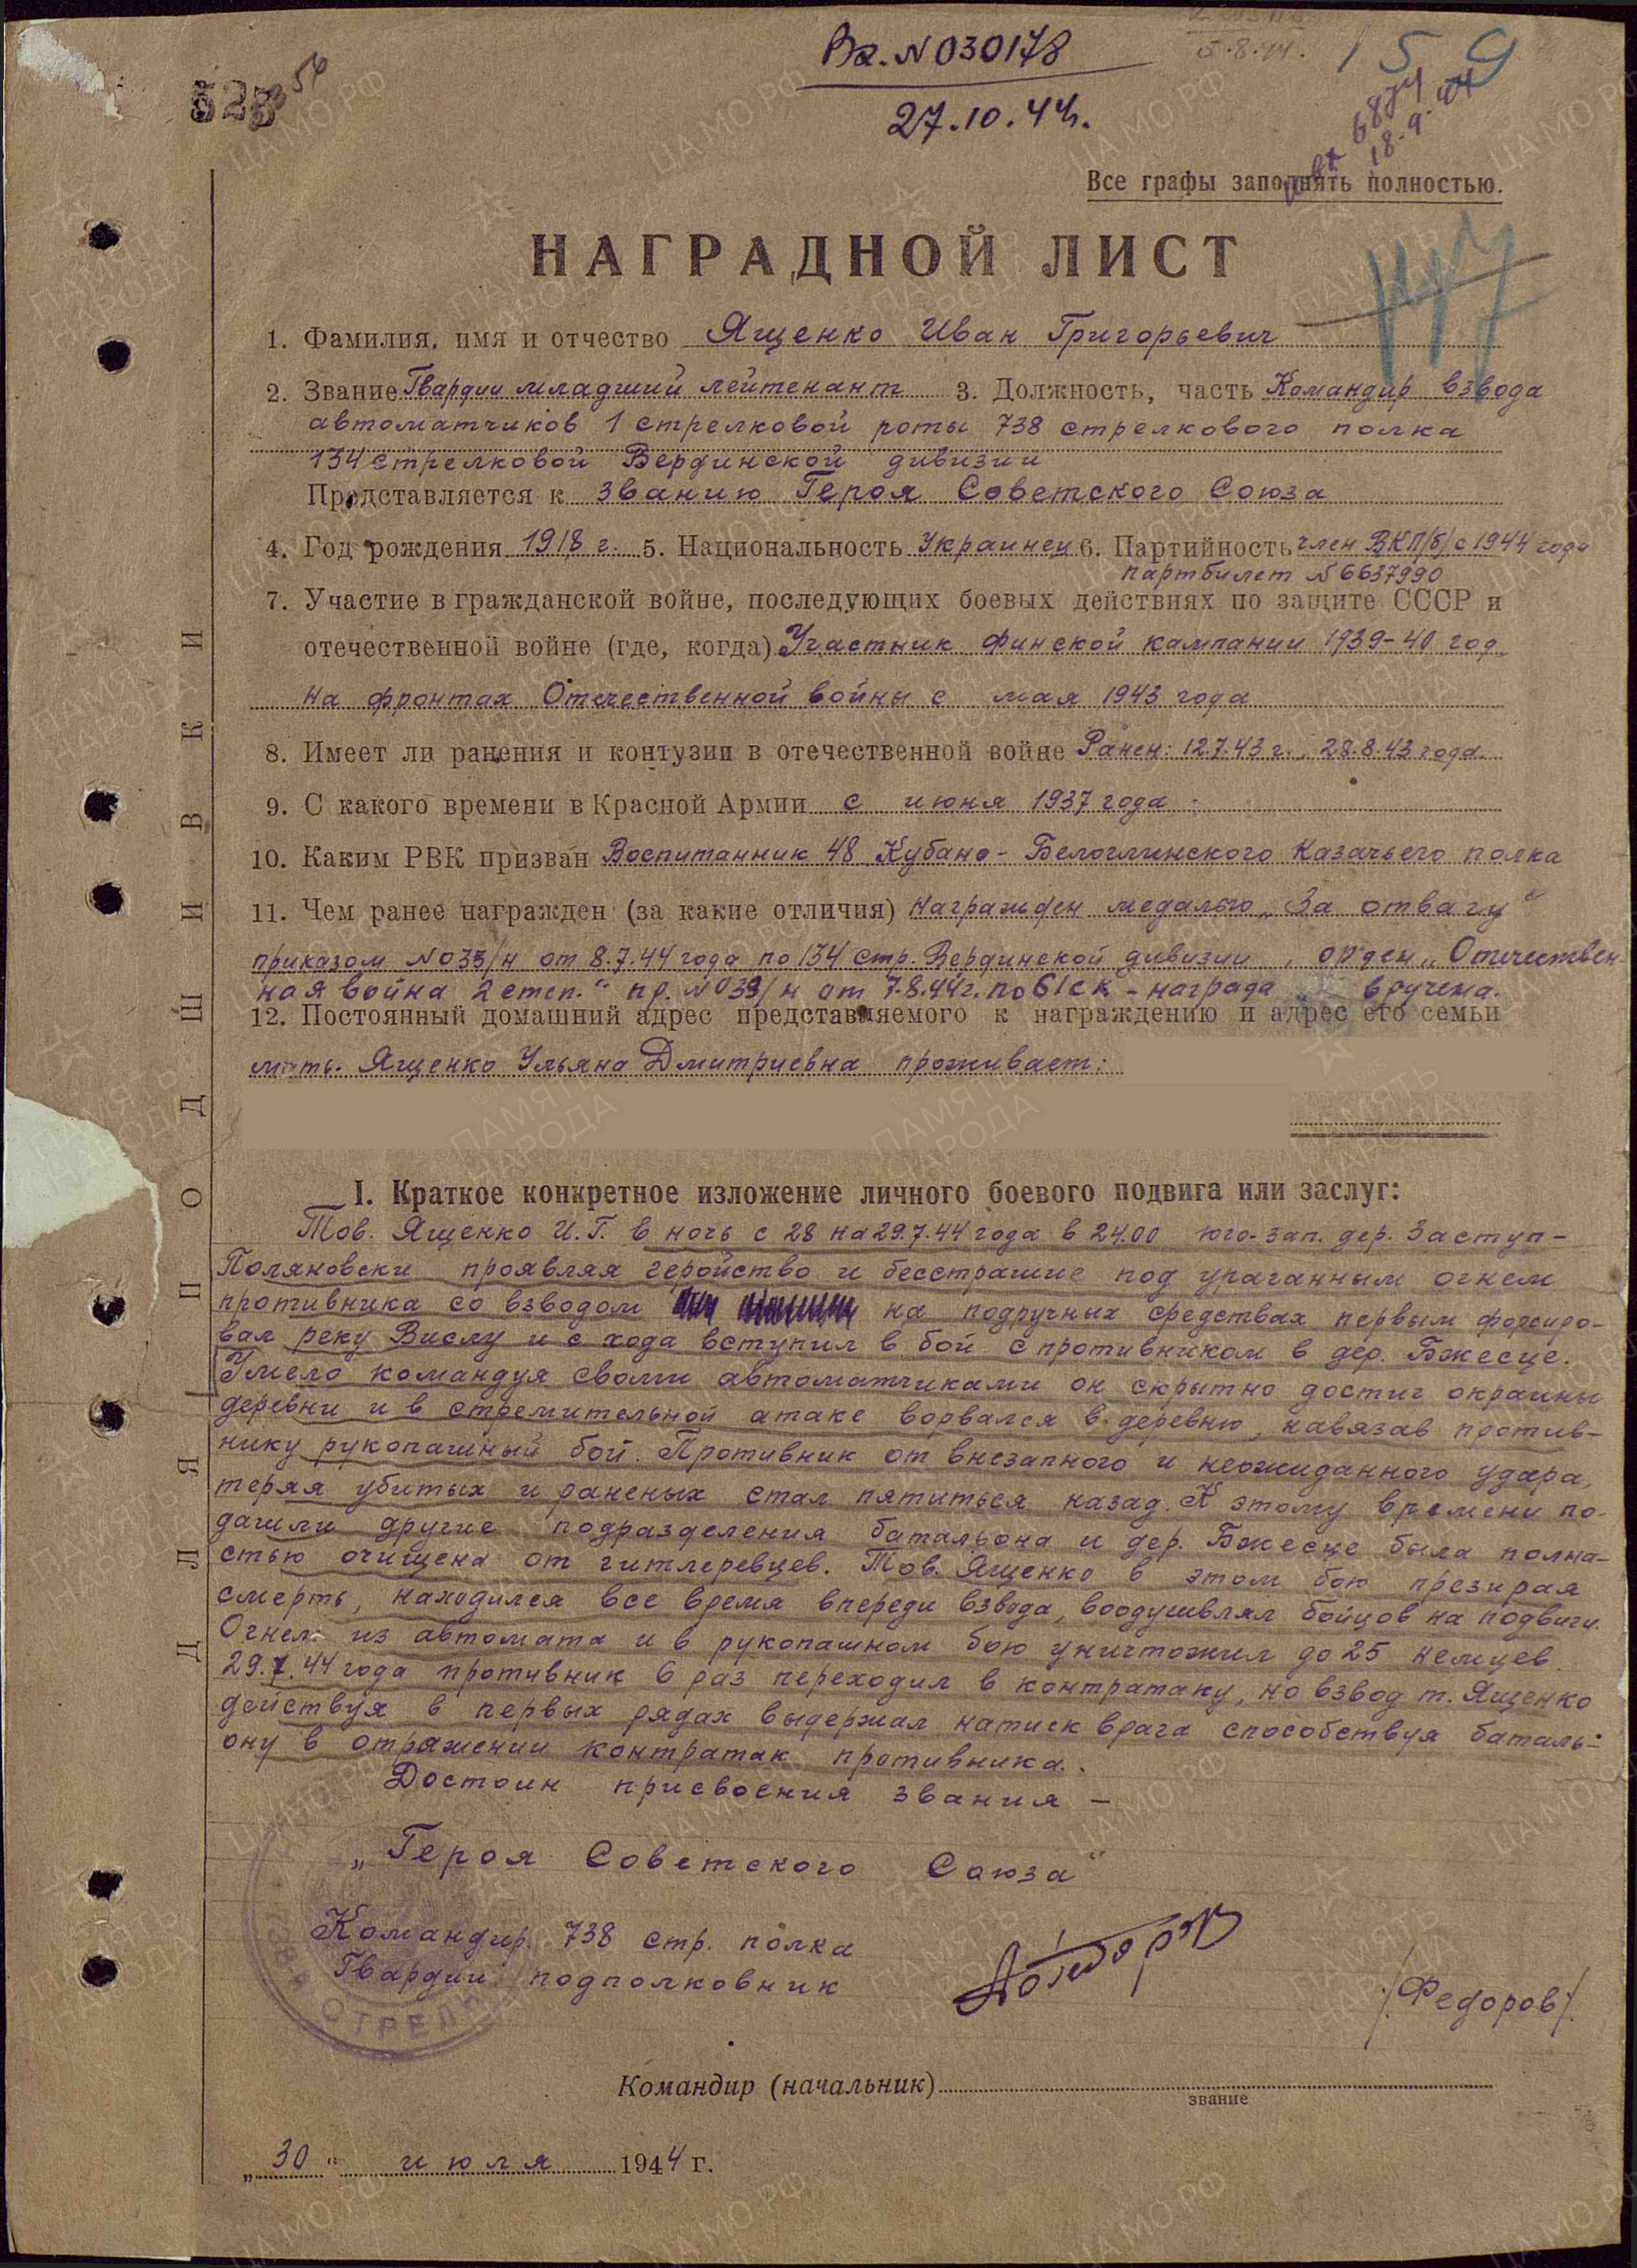 528 56
Вх. N 030178
27.10.44г.
5.8.44.
159
вх 6874
18.9.44
Все графы заполнять полностью.
НАГРАДНОЙ ЛИСТ
1. Фамилия, имя и отчество Ященко Иван Григорьевич
2. Звание Гвардии младший лейтенант 3. Должность, часть Командир взвода
автоматчиков 1 стрелковой роты 738 стрелкового полка
134 стрелковой Вердинской дивизии
Представляется к званию Героя Советского Союза
4. Год рождения 1918 г. 5. Национальность Украинец 6. Партийность член ВКП/б/ с 1944 года
партбилет N 6637990
7. Участие в гражданской войне, последующих боевых действиях по защите СССР и
отечественной войне (где, когда) Участник финской кампании 1939-40 год
на фронтах Отечественной войны с мая 1943 года
8. Имеет ли ранения и контузии в отечественной войне Ранен: 12.7.43 г., 28.8.43 года.
9. С какого времени в Красной Армии с июня 1937 года
10. Каким РВК призван Воспитанник 48 Кубано-Белоглинского Казачьего полка
11. Чем ранее награжден (за какие отличия) Награжден медалью „За отвагу"
приказом N 033/н от 8.7.44 года по 134 стр. Вердинской дивизии, орден „Отечествен-
ная война 2 степ." пр. N 039/н от 7.8.44г. по 61 ск - награда вручена.
12. Постоянный домашний адрес представляемого к награждению и адрес его семьи
мать. Ященко Ульяна Дмитриевна проживает:
I. Краткое конкретное изложение личного боевого подвига или заслуг:
Тов. Ященко И.Г. в ночь с 28 на 29.7.44 года в 24.00 юго-зап. дер. Заступ-
Поляновски проявляя геройство и бесстрашие под ураганным огнем
противника со взводом на подручных средствах первым форсиро-
вал реку Вислу и с хода вступил в бой с противником в дер. Бжесце.
Умело командуя своими автоматчиками он скрытно достиг окраины
деревни и в стремительной атаке ворвался в деревню, навязав против-
нику рукопашный бой. Противник от внезапного и неожиданного удара,
теряя убитых и раненых стал пятиться назад. К этому времени по-
дашли другие подразделения батальона и дер. Бжесце была полна-
стью очищена от гитлеревцев. Тов. Ященко в этом бою презирая
смерть, находился все время впереди взвода, воодушвлял бойцов на подвиги.
Огнем из автомата и в рукопашном бою уничтожил до 25 немцев
29.7.44 года противник 6 раз переходил в контратаку, но взвод т. Ященко
действуя в первых рядах выдержал натиск врага способствуя баталь-
ону в отражении контратак противника.
Достоин присвоения звания -
„Героя Советского Союза"
Командир 738 стр. полка
Гвардии подполковник
/Федоров/
Командир (начальник)
звание
„30" июля 1944 г.
ДЛЯ ПОДШИВКИ